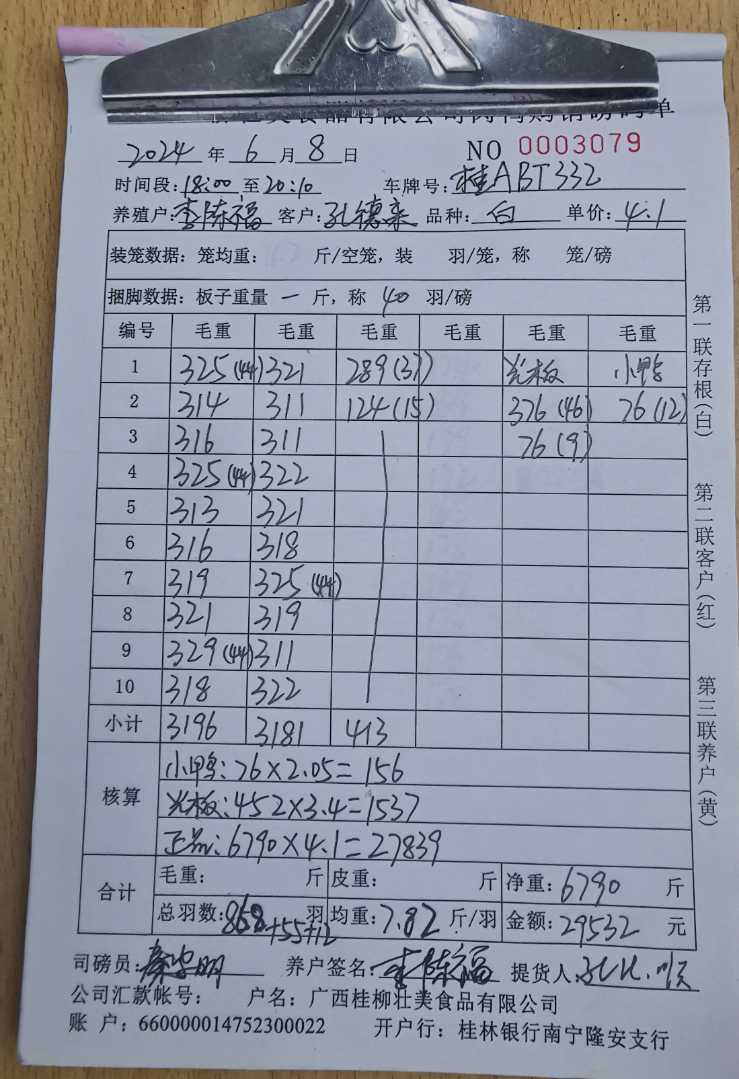 2024年6月8日 NO 0003079
时间段:18:00至20:10 车牌号:桂ABT332
养殖户:李陈福 客户:孔德亲 品种:白 单价:4.1
装笼数据:笼均重: 斤/空笼,装 羽/笼,称 笼/磅
捆脚数据:板子重量 一 斤,称 40 羽/磅
编号 毛重 毛重 毛重 毛重 毛重 毛重
1 325(44) 321 289(37) 光板 小鸭
2 314 311 124(15) 376(46) 76(12)
3 316 311 76(9)
4 325(44) 322
5 313 321
6 316 318
7 319 325(44)
8 321 319
9 329(44) 311
10 318 322
小计 3196 3181 413
核算
小鸭:76×2.05=156
光板:452×3.4=1537
正品:6790×4.1=27839
合计
毛重: 斤 皮重: 斤 净重:6790 斤
总羽数:868+55+12 羽 均重:7.82 斤/羽 金额:29532 元
司磅员: 养户签名:李陈福 提货人:
公司汇款帐号: 户名:广西桂柳壮美食品有限公司
账 户:660000014752300022 开户行:桂林银行南宁隆安支行
第一联存根(白)
第二联客户(红)
第三联养户(黄)